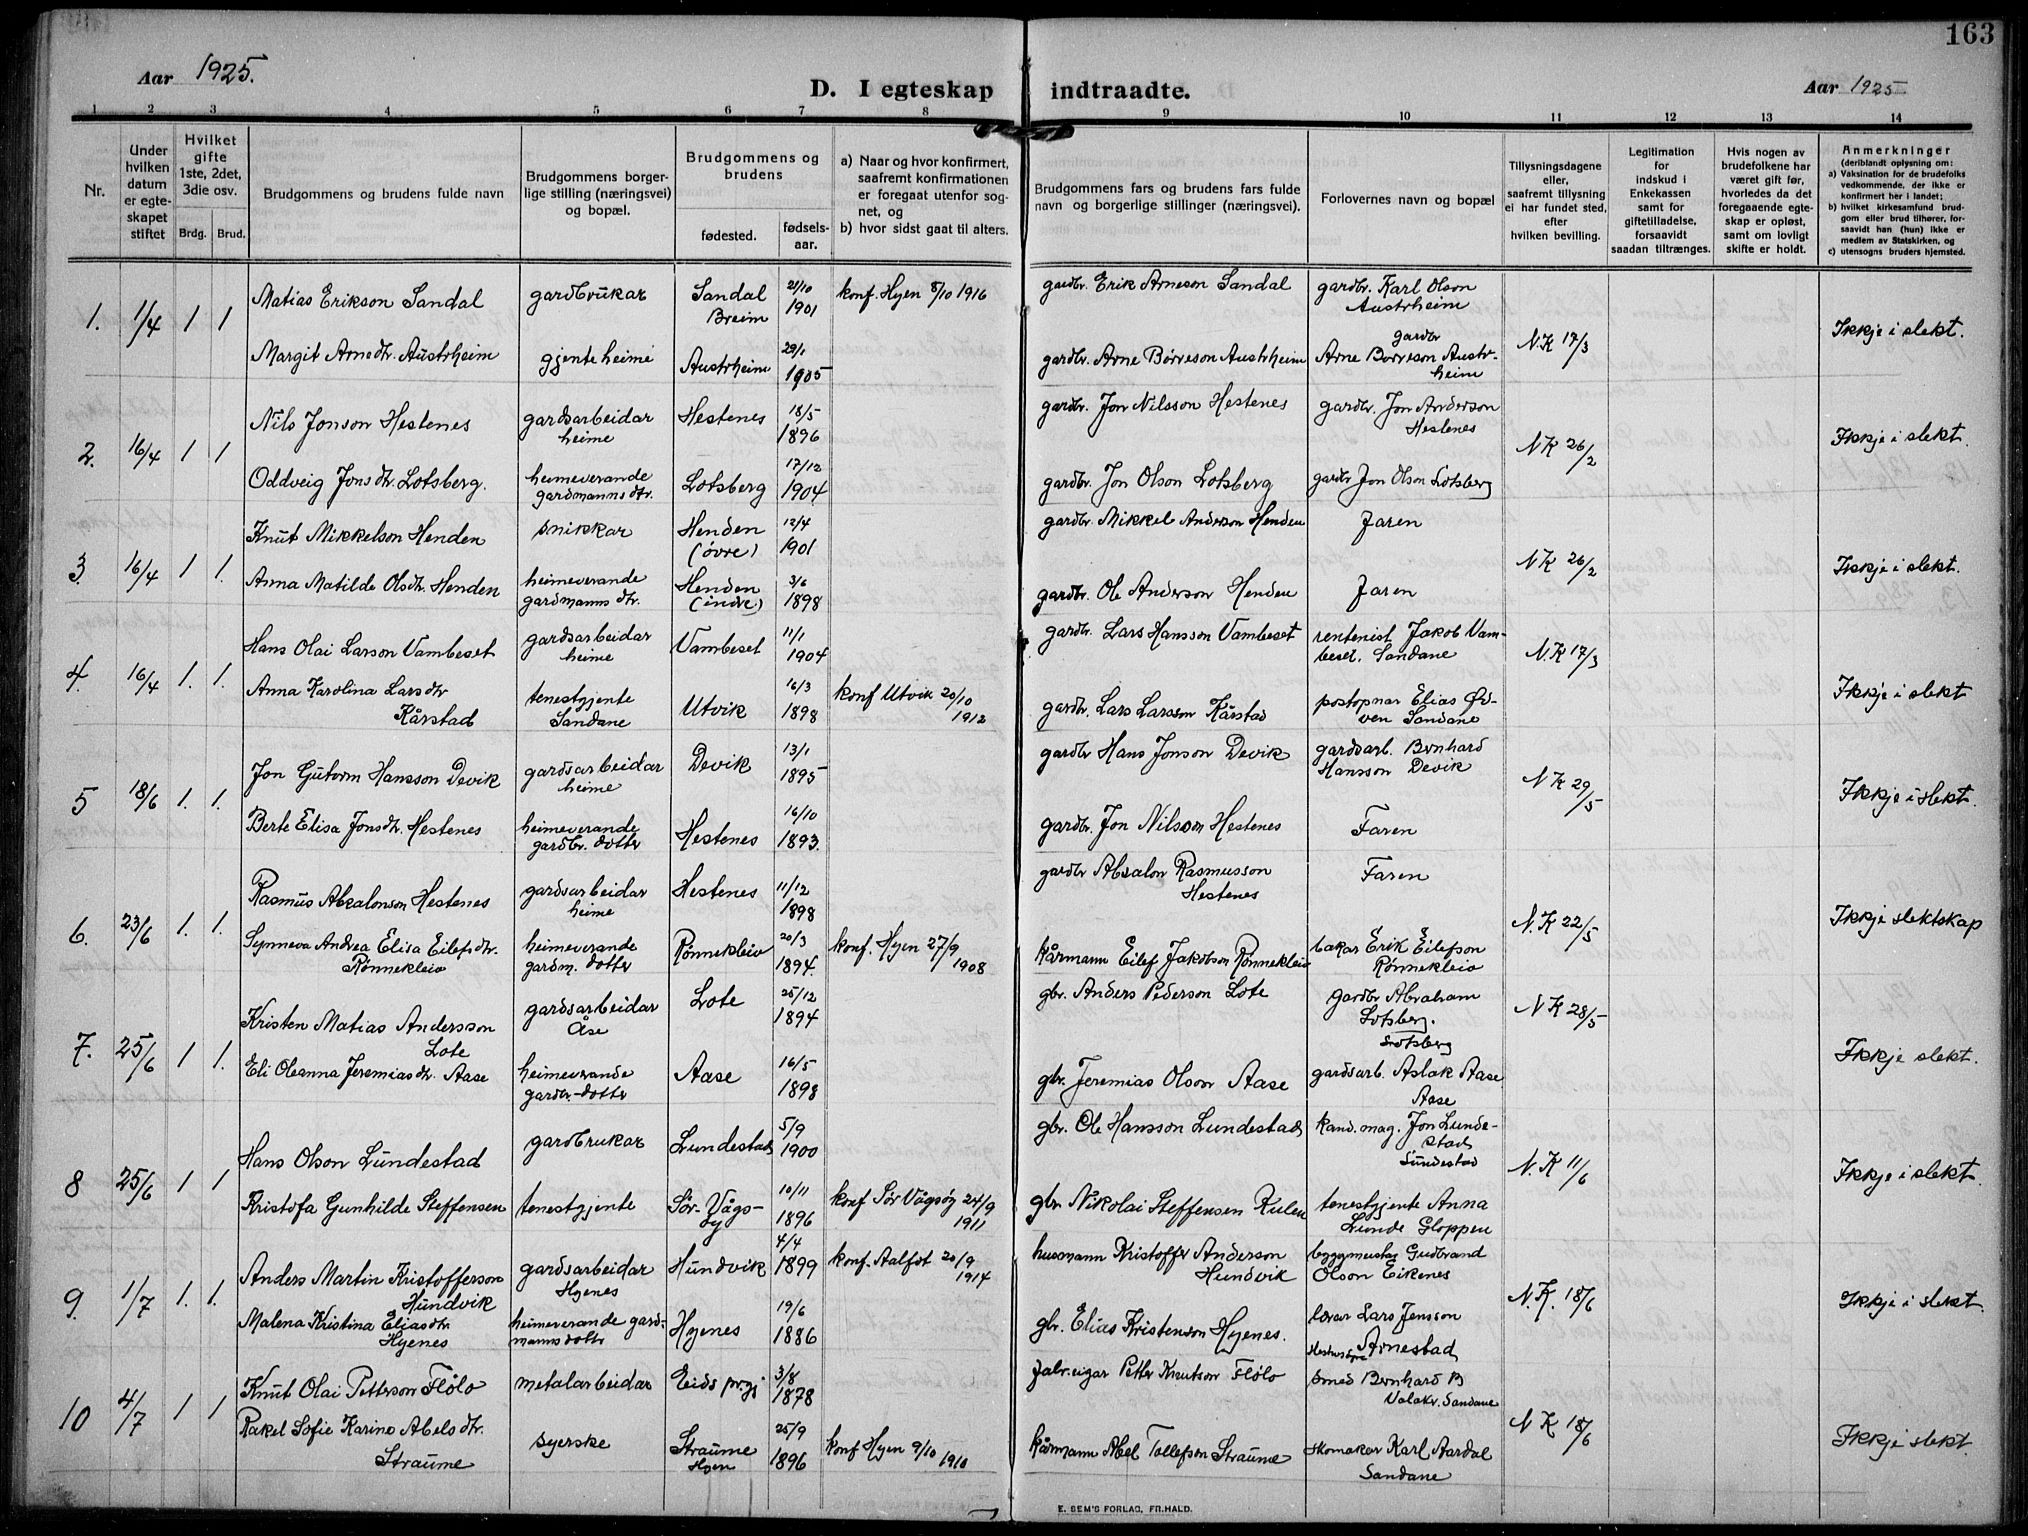 163
Aar 1925.
D. I egteskap indtraadte.
Aar 1925
1 2 3 4 5 6 7 8 9 10 11 12 13 14
Nr.
Under hvilken datum er egte-skapet stiftet
Hvilket gifte 1ste, 2det, 3die osv.
Brdg. Brud.
Brudgommens og brudens fulde navn
Brudgommens borger-lige stilling (næringsvei) og bopæl.
Brudgommens og brudens
fødested.
fødsels-aar.
a) Naar og hvor konfirmert, saafremt konfirmationen er foregaat utenfor sog-net, og
b) hvor sidst gaat til alters.
Brudgommens fars og brudens fars fulde navn og borgerlige stillinger (næringsvei).
Forlovernes navn og bopæl
Tillysningsdagene eller, saafremt tillysning ei har fundet sted, efter hvilken bevilling.
Legitimation for indskud i Enkekassen samt for giftetilladelse, forsaavidt saadan tiltrænges.
Hvis nogen av brudefolkene har været gift før, hvorledes da det foregaaende egte-skap er opløst, samt om lovligt skifte er holdt.
Anmerkninger
(deriblandt oplysning om:
a) Vaksination for de brudefolks vedkommende, der ikke er konfirmert her i landet;
b) hvilket kirkesamfund brud-gom eller brud tilhører, for-saavidt han (hun) ikke er medlem av Statskirken, og
c) utensogns bruders hjemsted.
1. 1/4 1 1
Matias Erikson Sandal gardbrukar Sandal Breim 21/10 1901 konf. Hyen 8/10 1916 gardbr. Erik Arneson Sandal gardbr. Karl Olson Austrheim
Margit Arnedtr. Austrheim gjente heime Austrheim 29/1 1905 gardbr. Arne Börreson Austrheim gardbr Arne Borreson Austr-heim N.K 17/3 Ikkje i slekt.
2. 16/4 1 1
Nils Jonson Hestenes gardsarbeidar heime Hestenes 18/5 1896 gardbr. Jon Nilsson Hestenes gardbr. Jon Anderson Hestenes
Oddveig Jonsdtr. Lotsberg. heimeverande gardmannsdtr. Lotsberg 17/12 1904 gardbr. Jon Olson Lotsberg gardbr Jon Olson Lotsberg N K 26/2 Ikkje i slekt.
3. 16/4 1 1.
Knut Mikkelson Henden snikkar Henden (övre) 12/4 1901 gardbr. Mikkel Anderson Henden Faren
Anna Matilde Olsdtr. Henden heimeverande gardmanns dtr. Henden (indre) 3/6 1898 gardbr. Ole Anderson Henden Faren N K 26/2 Ikkje i slekt.
4. 16/4 1. 1.
Hans Olai Larson Vambeset gardsarbeidar heime Vambeset 11/1 1904 gardbr. Lars Hansson Vambeset rentenist Jakob Vam-beset. Sandane
Anna Karolina Larsdtr Kårstad tenestgjente Sandane Utvik 16/3 1898 konf Utvik 20/10 1912 gardbr. Lars Larsson Kårstad postopnar Elias Ød-ven Sandane N.K 17/3 Ikkje i slekt
5 18/6 1. 1.
Jon Gutorm Hansson Devik gardsarbeidar heime Devik 13/1 1895 gardbr Hans Jonson Devik gardsarb. Bernhard Hansson Devik
Berte Elisa Jonsdtr. Hestenes heimeverande gardbr. dotter Hestenes 16/10 1893. gardbr. Jon Nilsson Hestenes Faren N K 29/5 Ikkje i slekt.
6. 23/6 1. 1.
Rasmus Absalonson Hestenes gardsarbeidar heime Hestenes 11/12 1898 gardbr Absalon Rasmusson Hestenes Faren
Synneva Andrea Elisa Eilefsdtr. Rönnekleiv heimeverande gardm. dotter Rönnekleiv 20/3 1894. konf. Hyen 27/9 1908 kårmann Eilef Jakobson Rønnekleiv bakar Erik Eilefson Rønnekleiv N.K 22/5 Ikkje slektskap
7. 25/6 1 1.
Kristen Matias Andersson Lote gardsarbeidar Åse Lote 25/12 1894 gbr. Anders Pederson Lote gardbr Abraham Lotsberg. Lotsberg
Eli Oleanna Jeremiasdtr. Aase heimeverande gardbr.-dotter Aase 16/5 1898 gbr. Jeremias Olson Aase gardsarb. Aslak Aase Aase N K 28/5 Ikkje slekt.
8 25/6 1 1
Hans Olson Lundestad gardbrukar Lundestad 5/9 1900 gbr. Ole Hansson Lundestad kand. mag. Jon Lunde-stad Lundestad
Kristofa Gunhilde Steffensen tenestgjente Sör-Vågs-öy 10/11 1896 konf Sör Vågsöy 24/9 1911 gbr Nikolai Steffensen Rulen tenestgjente Anna Lunde Gloppen N.K 11/6 Ikkje i slekt.
9. 1/7 1. 1.
Anders Martin Kristofferson Hundvik gardsarbeidar Hyenes Hundvik 4/4 1899 konf. Aalfot 20/9 1914 husmann Kristoffer Anderson Hundvik byggmeister Gudbrand Olson Eikenes
Malena Kristina Eliasdtr Hyenes heimeverande gard-mannsdotter Hyenes 19/6 1886 gbr. Elias Kristenson Hyenes. lærar Lars Jensson Arnestad N.K. 18/6 Ikkje i slekt.
10 4/7 1 1
Knut Olai Petterson Flölo metalarbeidar Eids prgj 3/8 1878 fabr.eigar Petter Knutson Flölo smed Bernhard B Valaker. Sandane
Rakel Sofie Karine Abelsdtr. Straume syerske Straume Hyen 25/9 1896 konf Hyen 9/10 1910 kårmann Abel Tollefsen Straume skomakar Karl Aardal Sandane N K 18/6 Ikkje slekt.
E. SEM'S FORLAG, FR.HALD.